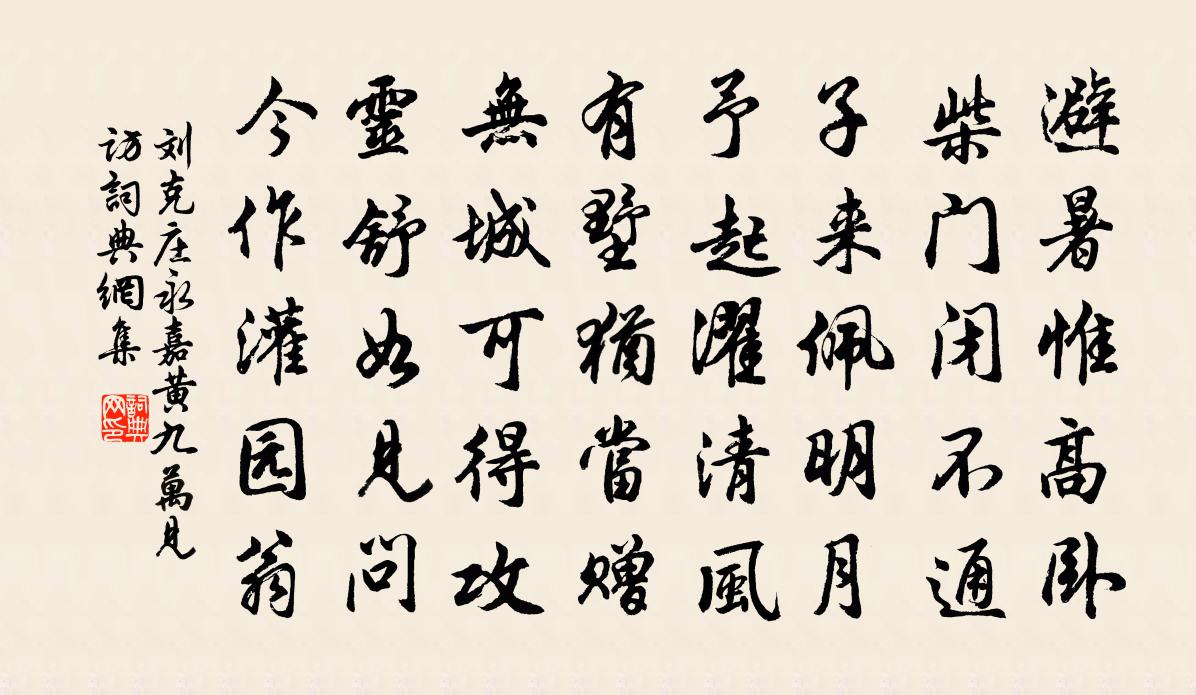 避暑惟高卧
柴门闭不通
子来佩明月
予起濯清風
有墅猶當赠
無城可得攻
靈舒如見问
今作灌园翁
刘克庄永嘉黄九萬見
访詞典網集
詞典
网印